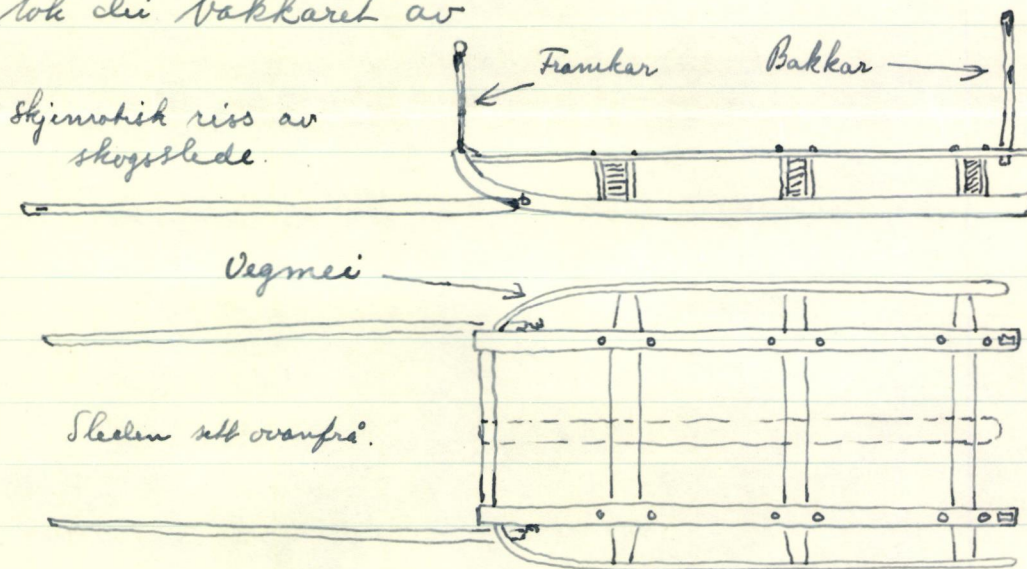 tok dei bakkaret av
Framkar
Bakkar
Skjematisk riss av
skogsslede.
Vegmei
Sleden sett ovanfrå.